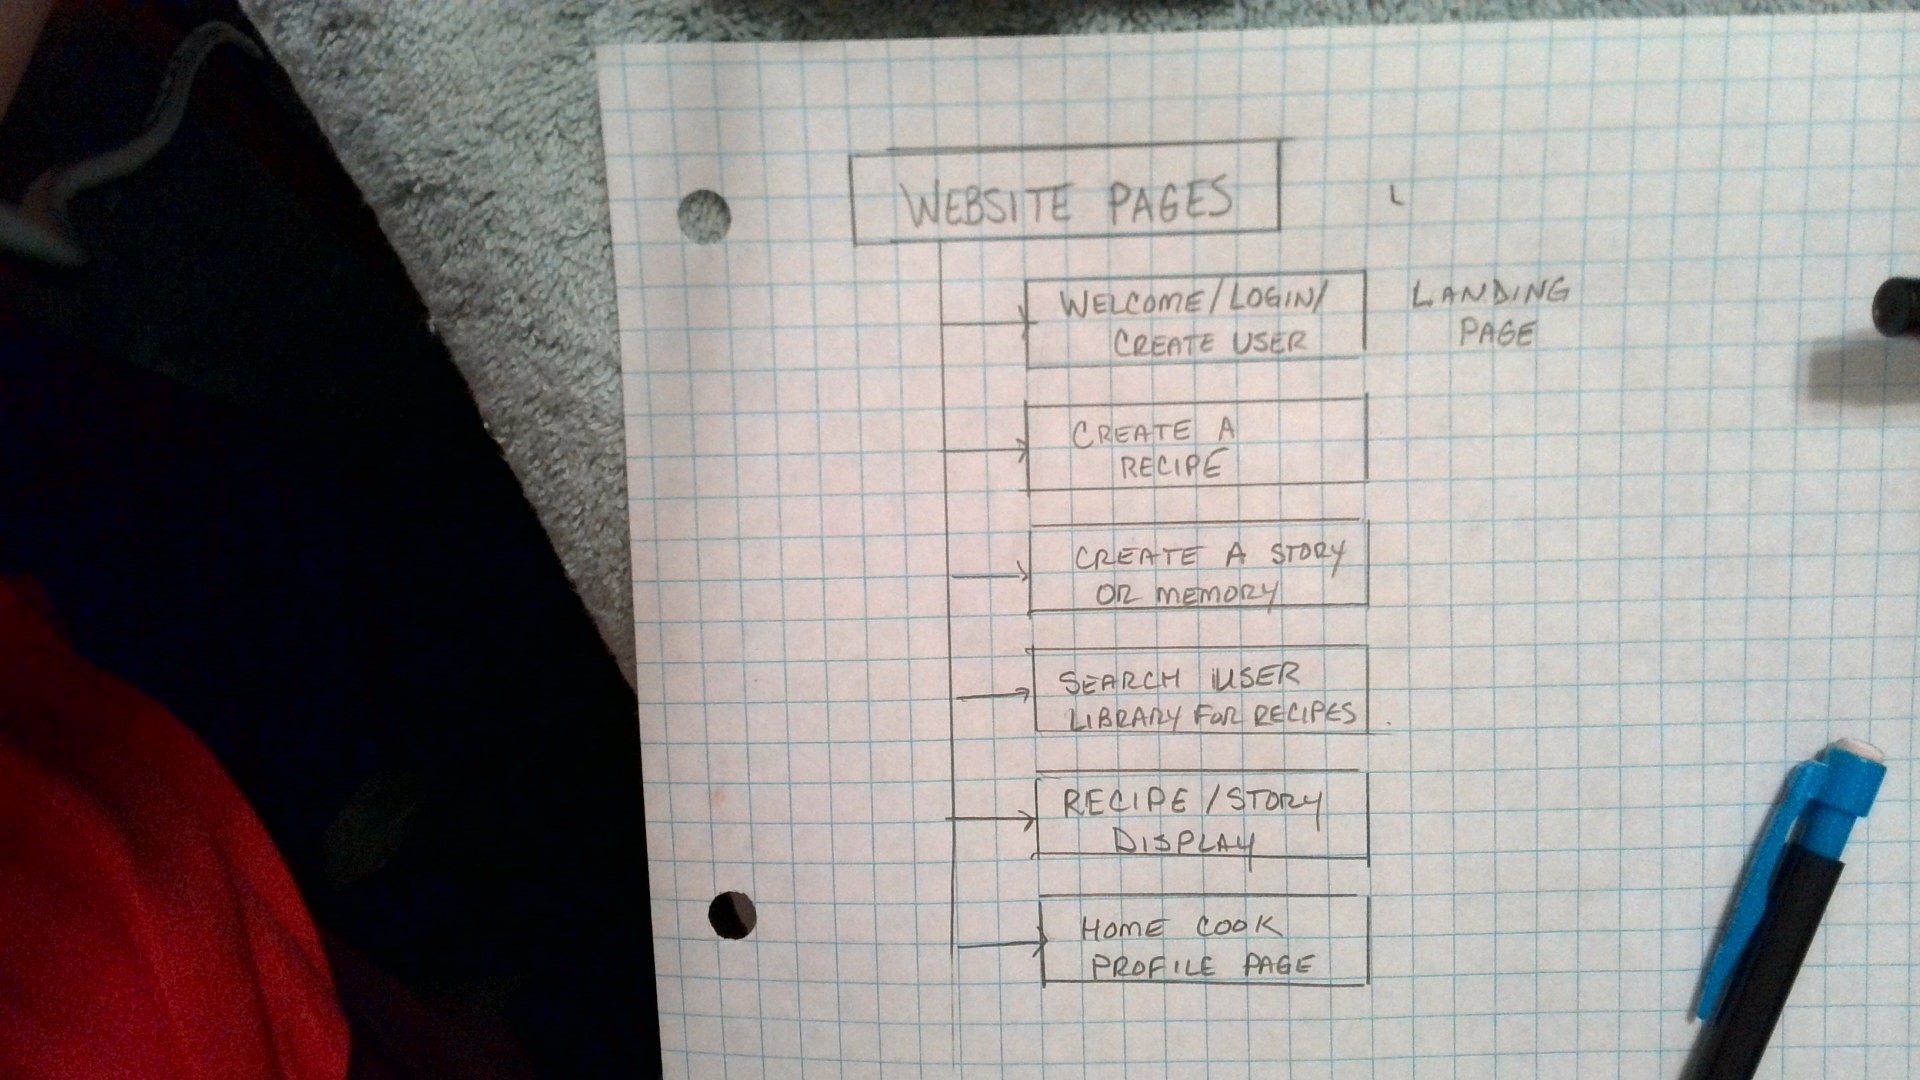 WEBSITE PAGES
WELCOME/LOGIN/
CREATE USER
LANDING
PAGE
CREATE A
RECIPE
CREATE A STORY
OR MEMORY
SEARCH USER
LIBRARY FOR RECIPES
RECIPE/STORY
DISPLAY
HOME COOK
PROFILE PAGE